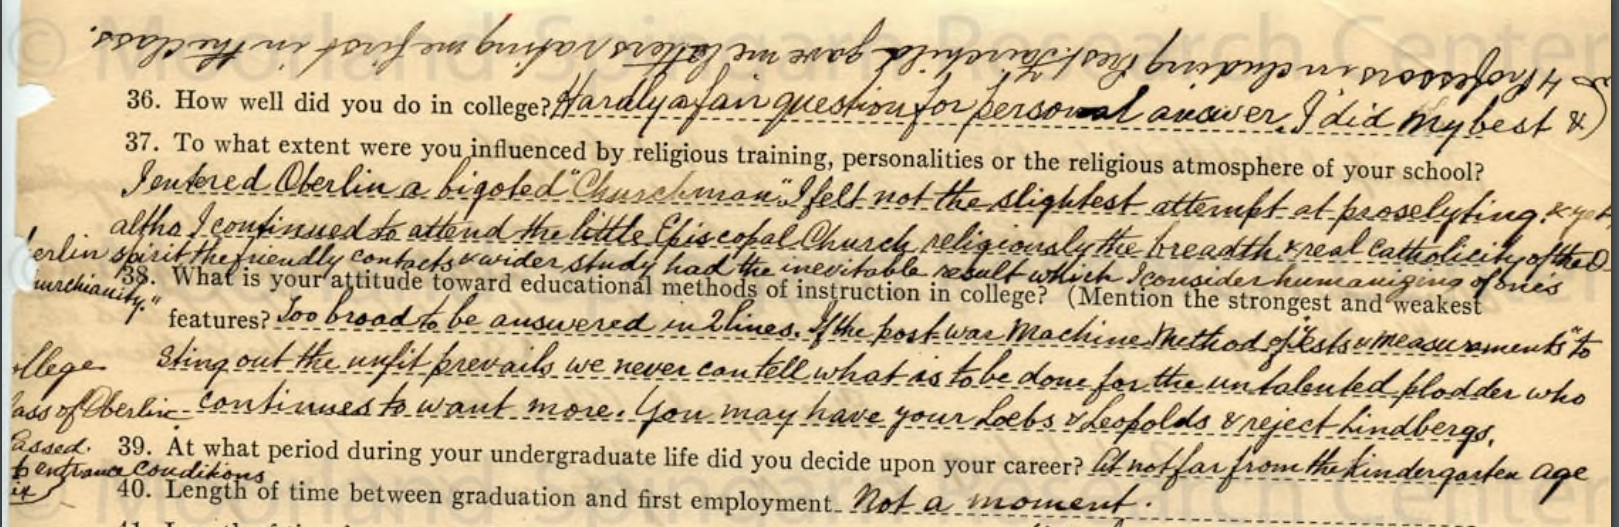 36. How well did you do in college? Hardly a fair question for personal answer. I did my best &)
(& 4 Professors including Prest. Fairchild gave me letters rating me first in the class.
37. To what extent were you influenced by religious training, personalities or the religious atmosphere of your school?
I entered Oberlin a bigoted "Churchman". I felt not the slightest attempt at proselyting. & yet,
altho I continued to attend the little Episcopal Church religiously the breadth & real Catholicity of the O
erlin spirit the friendly contacts & wider study had the inevitable result which I consider humanizing of one's
urchianity."
38. What is your attitude toward educational methods of instruction in college? (Mention the strongest and weakest
features? Too broad to be answered in 2 lines. If the post war Machine Method of "tests & measurements" to
sting out the unfit prevails we never can tell what is to be done for the untalented plodder who
continues to want more. You may have your Loebs & Leopolds & reject Lindbergs.
ollege
lass of Oberlin
assed.
entrance conditions
it
39. At what period during your undergraduate life did you decide upon your career? At not far from the kindergarten age
40. Length of time between graduation and first employment. Not a moment.
© Moorland Spingarn Research Center